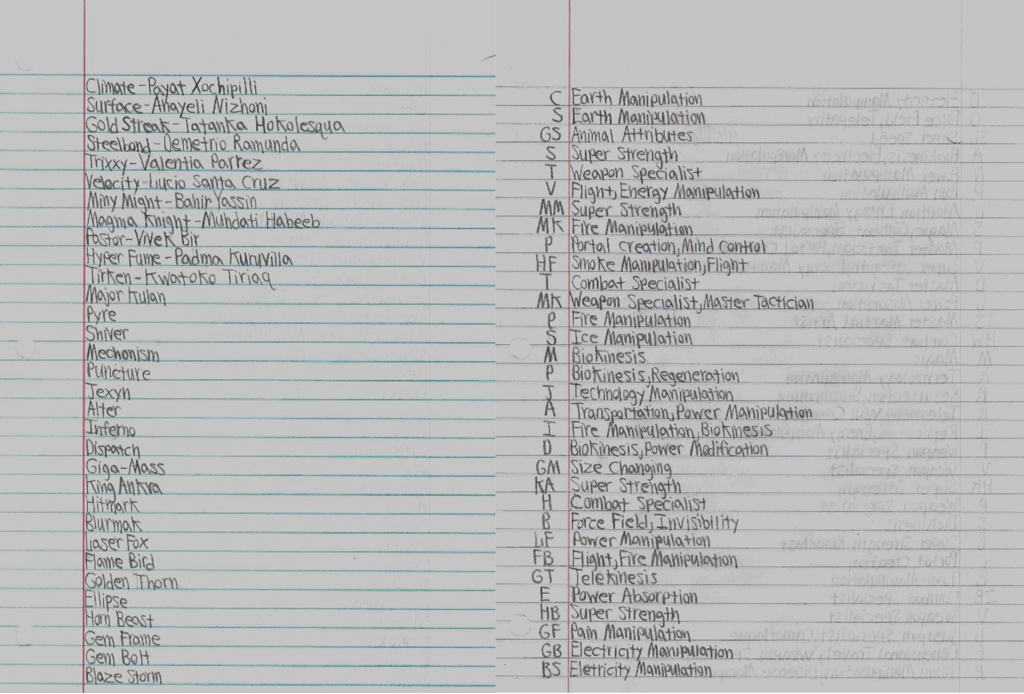 Climate-Payat Xochipilli
Surface-Anayeli Nizhoni
Gold Streak-Tatanka Hokolesqua
Steelbond-Demetrio Ramunda
Trixxy-Valentia Parrez
Velocity-Lucio Santa Cruz
Miny Might-Bahir Yassin
Magma Knight-Muhdati Habeeb
Pastor-Vivek Bir
Hyper Fume-Padma Kuruvilla
Tirken-Kwatoko Tiriaq
Major Kulan
Pyre
Shiver
Mechonism
Puncture
Jexyn
Alter
Inferno
Dispatch
Giga-Mass
King Ankra
Hitmark
Blurmak
Laser Fox
Flame Bird
Golden Thorn
Ellipse
Horn Beast
Gem Frame
Gem Bolt
Blaze Storm
C Earth Manipulation
S Earth Manipulation
GS Animal Attributes
S Super Strength
T Weapon Specialist
V Flight, Energy Manipulation
MM Super Strength
MK Fire Manipulation
P Portal Creation, Mind Control
HF Smoke Manipulation, Flight
T Combat Specialist
MK Weapon Specialist, Master Tactician
P Fire Manipulation
S Ice Manipulation
M Biokinesis
P Biokinesis, Regeneration
J Technology Manipulation
A Transportation, Power Manipulation
I Fire Manipulation, Biokinesis
D Biokinesis, Power Modification
GM Size Changing
KA Super Strength
H Combat Specialist
B Force Field, Invisibility
LF Power Manipulation
FB Flight, Fire Manipulation
GT Telekinesis
E Power Absorption
HB Super Strength
GF Pain Manipulation
GB Electricity Manipulation
BS Eletricity Manipulation